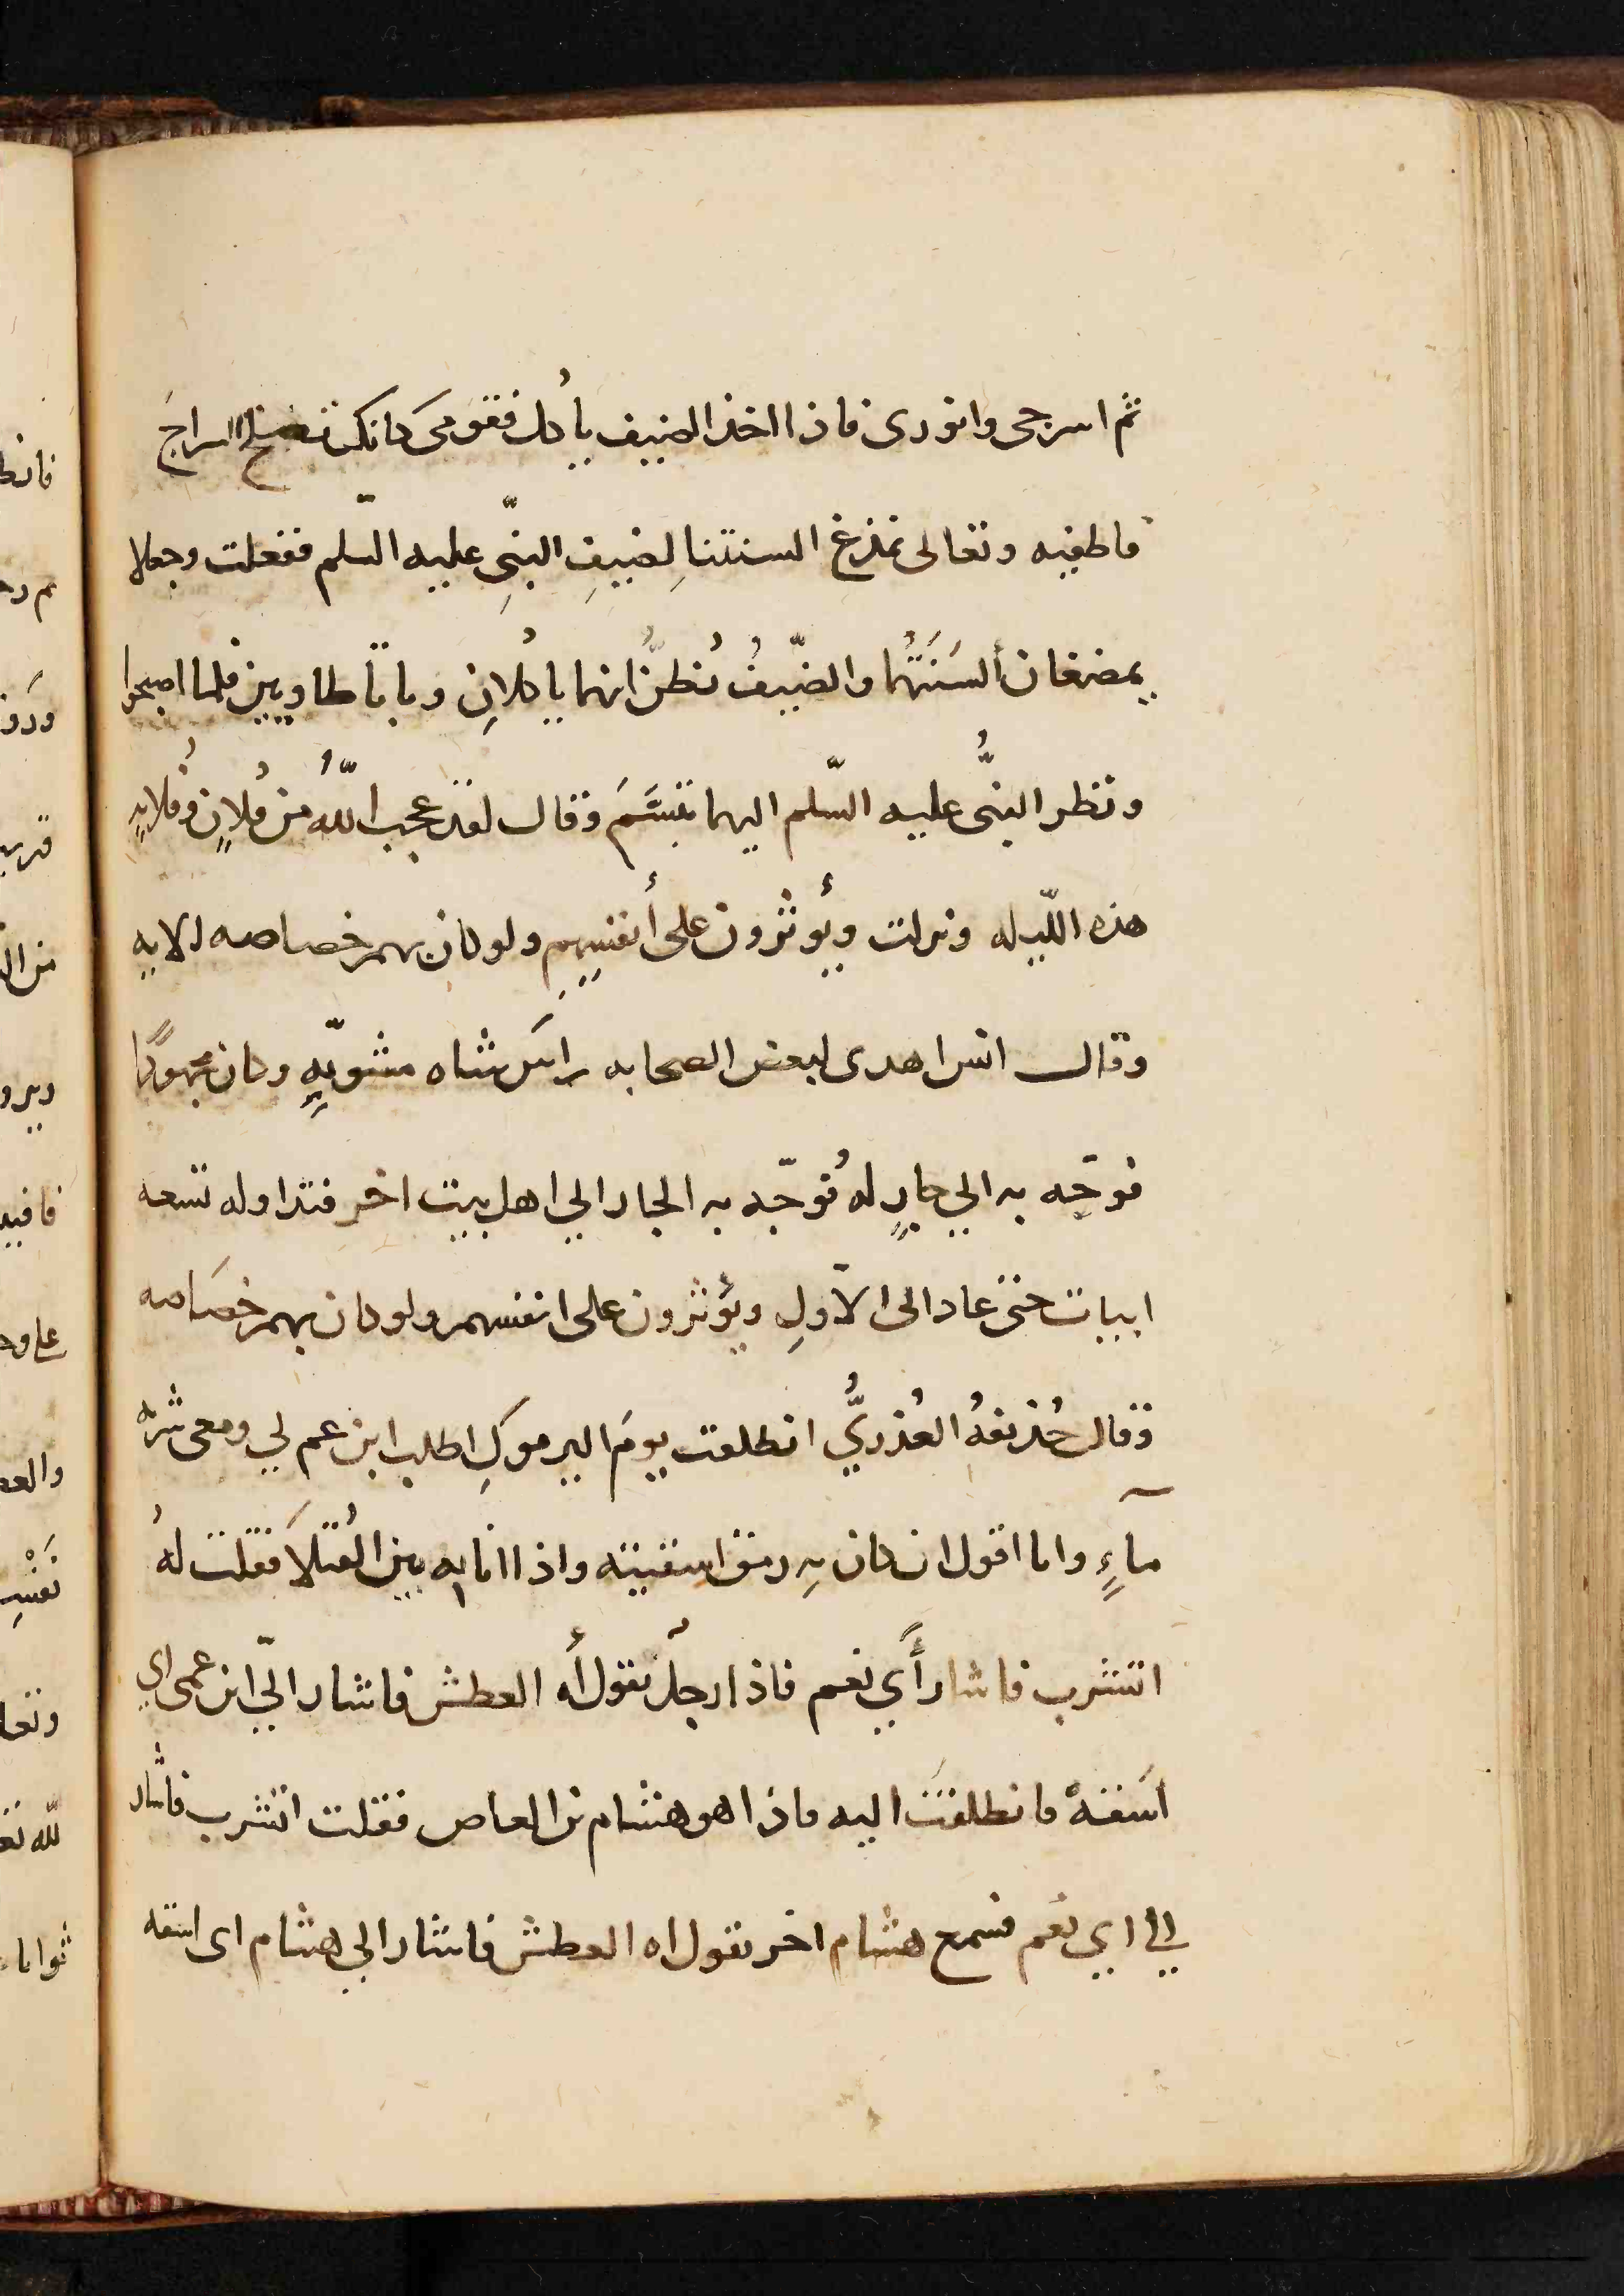 ثم اسرجى وانورى فاذا اخذ الضيف يأكل فقومى كانكِ تصلح السراجَ
فاطفيه وتعالى نمذغ السنتنا لضيفِ النبىِّ عليه السّلم ففعلت وجعلا
يمضغان ألسَنَتُهُما والضّيفُ يُظنُّ انهما ياكُلانِ وباتا طاويين فلما اصبحوا
ونظر النبىُّ عليه السّلم اليهما تبسَّمَ وقال لقد عجب اللّٰهُ من فُلانٍ وفُلانهٍ
هذه اللّيله ونزلت ويؤثرون على أنفسِهِم ولو كان بهم خصاصه الايه
وقال انس اهدى لبعض الصحابه راسَ شاه مشويّهٍ وكان مجهودًا
فوجّه به الي جارٍ له فُوجّه به الجار الي اهل بيت اخر فتداوله تسعه
ابيات حتى عاد الى الاولِ ويؤثرون على انفسهم ولو كان بهم خصَاصه
وقال حُذيفهُ العُذريُّ انطلقت يومَ اليرموكِ اطلب ابن عم لي ومعى شربه
مآءٍ وانا اقول ان كان بهِ رمق اسقيته واذا انا به بين القُتلاَ فقلت لهُ
اتشرب فاشار أي نعم فاذا رجلٌ يقول أه العطش فاشار اليّ ابن عمى اي
اسَقهْ فانطلقت اليه فاذا هو هشام بن العاص فقلت اتشرب فاشار
الي اي نعم فسمع هشام اخر يقول اه العطش فاشار الي هشام اى اسقه